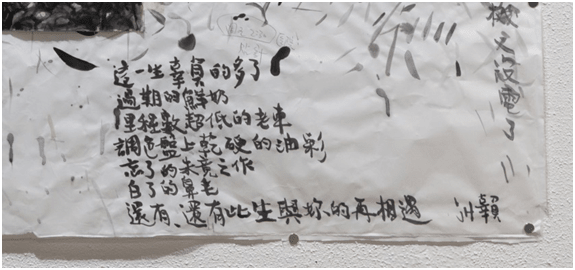 機又沒電了
這一生辜負的多了
過期的鮮奶
里程數超低的老車
調色盤上乾硬的油彩
忘了的未竟之作
白了的鼻毛
還有、還有此生與妳的再相遇